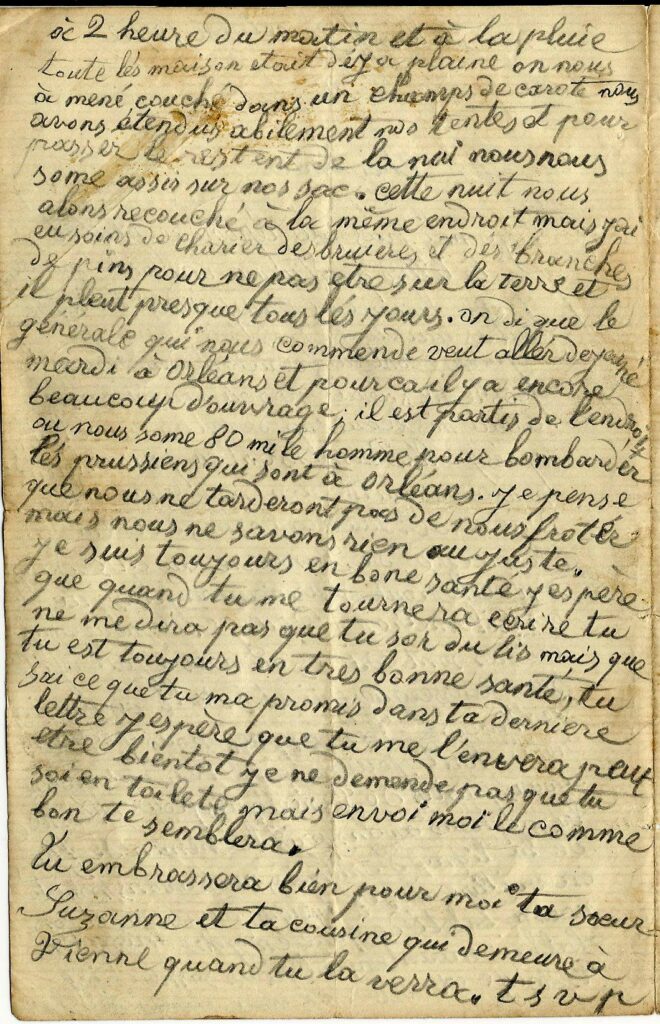 à 2 heure du matin et à la pluie
toute lés maison etait deya plaine on nous
à mené couché dans un champs de carote nous
avons étendus abilement nos tentes et pour
passer le restent de la nui nous nous
some assis sur nos sac. cette nuit nous
alons recouché à la même endroit mais yai
eu soins de charier des bruieres et des branches
de pins pour ne pas etre sur la terre et
il pleut presque tous lés yours. on di que le
générale qui nous commende veut allér deyeuné
mardi à Orléans et pour ca il y a encore
beaucoup d'ouvrage. il est partis de l'endroit
ou nous some 80 mile homme pour bombarder
lés prussiens qui sont à Orléans. ye pense
que nous ne tarderont pas de nous frotér
mais nous ne savons rien au yuste.
ye suis touyours en bone santé yespère
que quand tu me tournera ecrire tu
ne me dira pas que tu sor du lis mais que
tu est touyours en tres bonne santé, tu
sai ce que tu ma promis dans ta derniere
lettre yespère que tu me l'envera peut
etre bientot ye ne demende pas que tu
soi en toilete mais envoi moi le comme
bon te semblera.
Tu embrassera bien pour moi ta sœur
Suzanne et ta cousine qui demeure à
Vienne quand tu la verra. t s v p